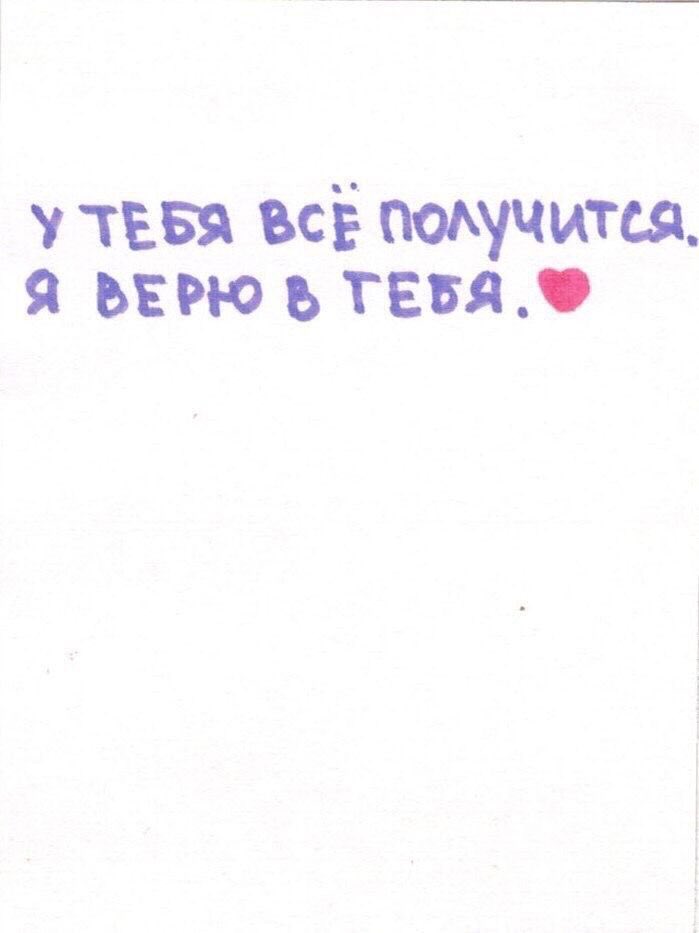 У ТЕБЯ ВСЁ ПОЛУЧИТСЯ.
Я ВЕРЮ В ТЕБЯ.❤